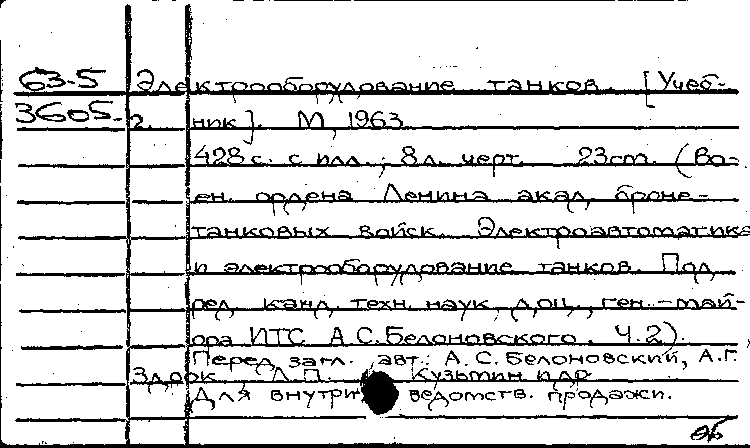 63-5 Электрооборудование танков. [Учеб-
3605. 2. ник]. М, 1963
428 с. с илл.; 8 л. черт. 23 cm. (Во-
ен. ордена Ленина акад. броне-
танковых войск. Электроавтоматика
и электрооборудование танков. Под
ред. канд. техн. наук, доц., ген.-май-
ора ИТС А.С. Белоновского. Ч. 2).
Перед загл. авт.: А. С. Белоновский, А.Г.
Здрок, Л.П. Кузьмин и др
Для внутри ведомств. продажи.